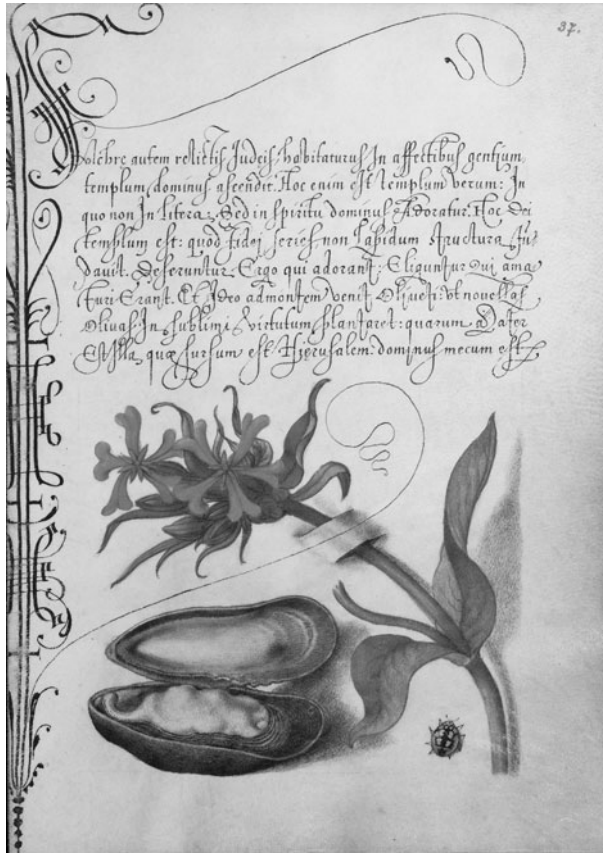 37.
Pulchre autem relictis Judeis: habitaturus In affectibus gentium
templum, dominus ascendit. Hoc enim est templum verum: In
quo non In litera: Sed in spiritu dominus Adoratur. Hoc Dei
templum est: quod fidei series non Lapidum structura fu-
davit. Deseruntur Ergo qui adorant: Eliguntur qui ama
turi Erant. Et Ideo ad montem venit Oliueti: vt nouellas
Olivas In sublimi Virtutum plantaret: quarum Mater
Est Illa, quæ sursum est Hjerusalem: dominus mecum est